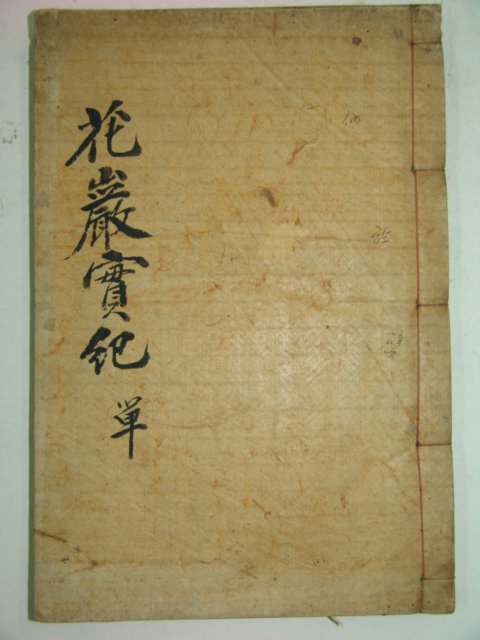 花巖實紀 單